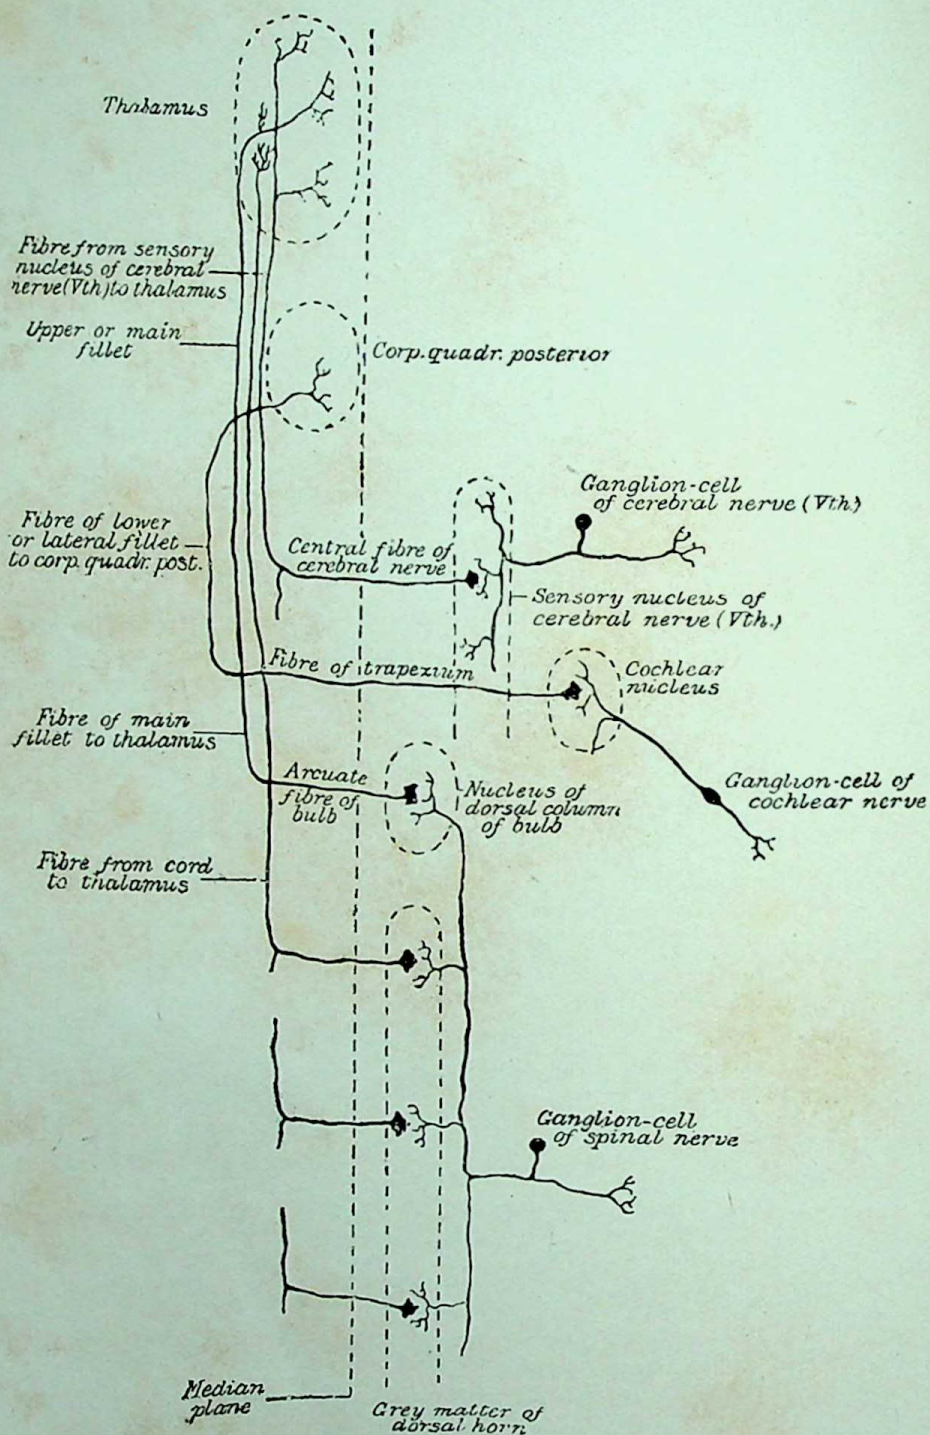 Thalamus
Fibre from sensory
nucleus of cerebral
nerve (Vth) to thalamus
Upper or main
fillet
Corp. quadr. posterior
Ganglion-cell
of cerebral nerve (Vth.)
Fibre of lower
or lateral fillet
to corp. quadr. post.
Central fibre of
cerebral nerve
Sensory nucleus of
cerebral nerve (Vth.)
Fibre of trapezium
Cochlear
nucleus
Fibre of main
fillet to thalamus
Arcuate
fibre of
bulb
Nucleus of
dorsal column
of bulb
Ganglion-cell of
cochlear nerve
Fibre from cord
to thalamus
Ganglion-cell
of spinal nerve
Median
plane
Grey matter of
dorsal horn